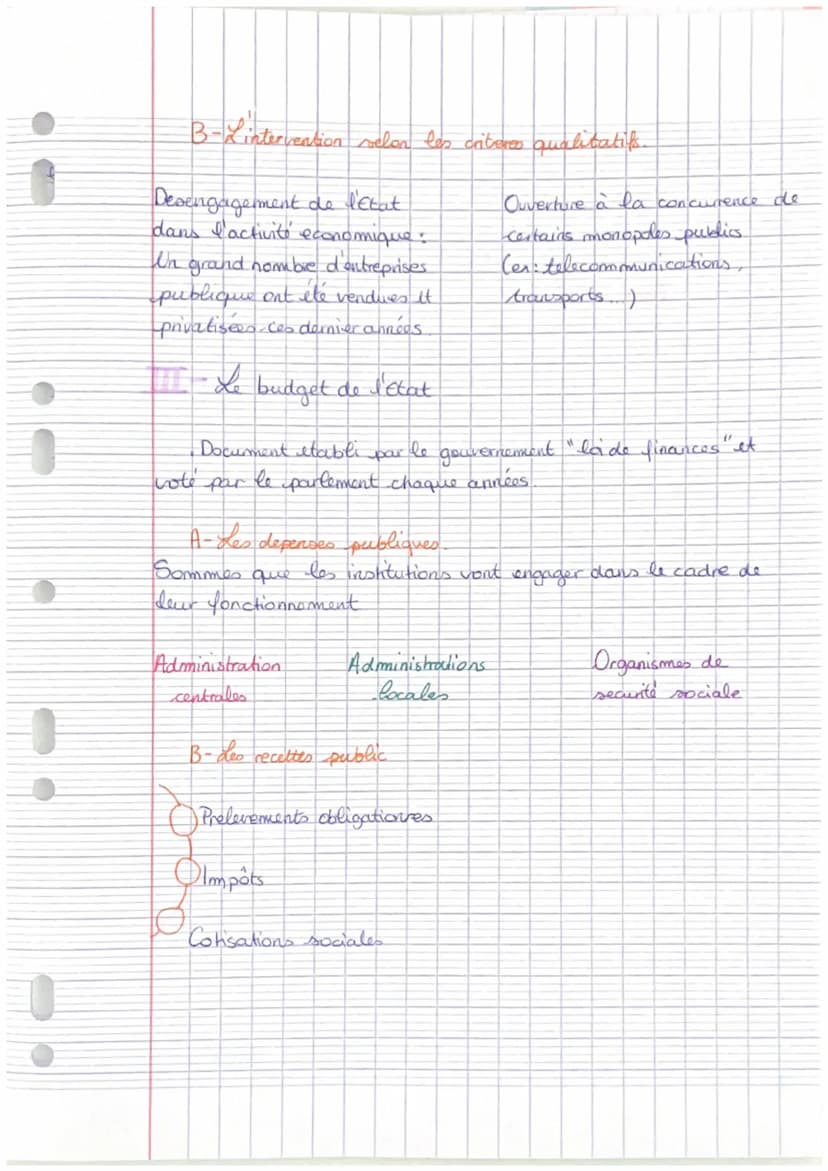 B-L'intervention selon les criteres qualitatifs.
Desengagement de l'Etat
dans l'activité economique :
Un grand nombre d'entreprises
publique ont été vendues et
privatisées ces dernier années.
Ouverture à la concurence de
certains monopoles publics
(ex: telecommunications,
transports...)
III - Le budget de l'Etat
Document etabli par le gouvernement "loi de finances" et
voté par le parlement chaque années.
A- Les depenses publiques.
Sommes que les institutions vont engager dans le cadre de
leur fonctionnement
Administration
centrales
Administrations
locales
Organismes de
securité sociale
B- Les recettes public
Prelevements obligatiores
Impôts
Cotisations sociales